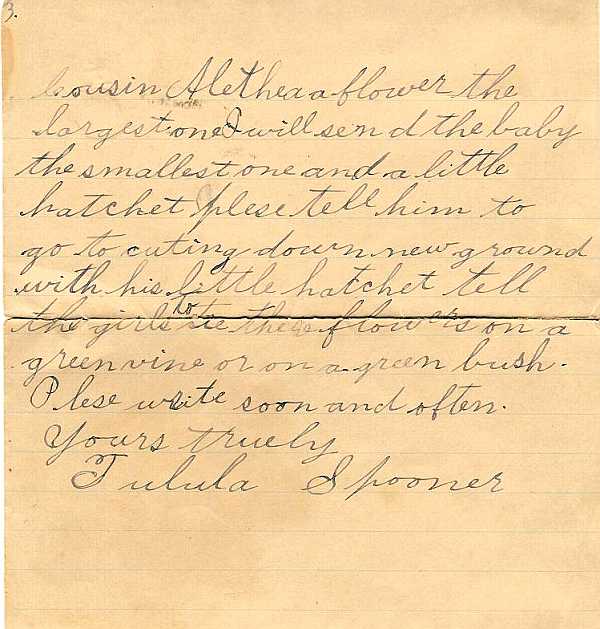 3.
cousin Alethea a flower the
largest one I will send the baby
the smallest one and a little
hatchet plese tell him to
go to cuting down new ground
with his little hatchet tell
the girls to tie these flowers on a
green vine or on a green bush.
Plese write soon and often.
Yours truely
Tulula Spooner